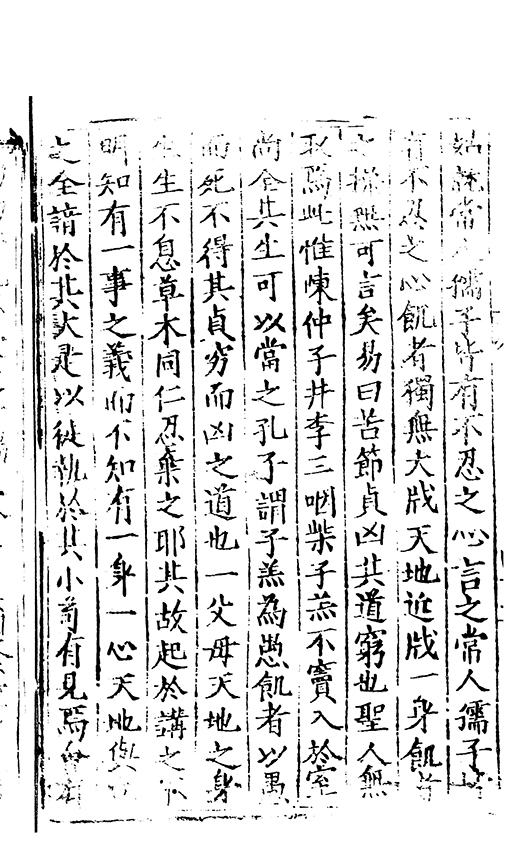 常孺子皆有不忍之心言之常人孺子
有不忍之心飢者獨無大戕天地近戕一身飢者
無可言矣易曰苦節貞凶其道窮也聖人無
取焉此惟陳仲子井李三咽柴子羔不竇入於室
尚全其生可以當之孔子謂子羔為愚飢者以愚
而死不得其貞窮而凶之道也一父母天地之身
生生不息草木同仁忍棄之耶其故起於講之不
明知有一事之義而不知有一身一心天地與
之全諳於其大是以徒執於其小苟有見焉